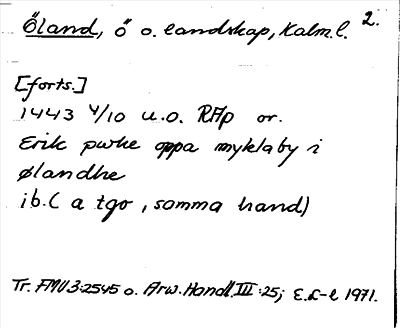 Öland, ö o. landskap, Kalm.l. 2.
[forts.]
1443 4/10 u.o. RAp or.
Erik puke oppa myklaby i
ølandhe
ib. (a tgo, samma hand)
Tr. FMU 3:2545 o. Arw. Handl. III:25; E.L-l 1971.